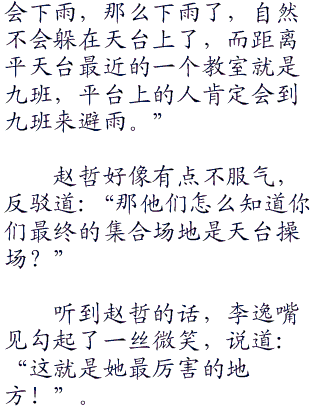 会下雨，那么下雨了，自然
不会躲在天台上了，而距离
平天台最近的一个教室就是
九班，平台上的人肯定会到
九班来避雨。”
赵哲好像有点不服气，
反驳道：“那他们怎么知道你
们最终的集合场地是天台操
场？”
听到赵哲的话，李逸嘴
见勾起了一丝微笑，说道：
“这就是她最厉害的地
方！”。